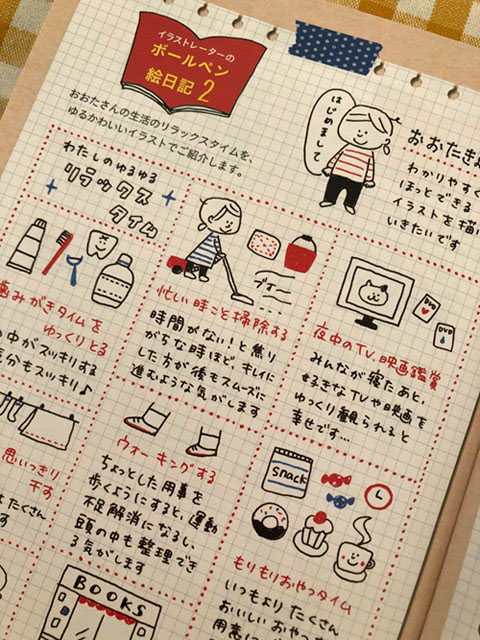 イラストレーターの
ボールペン
絵日記2
おおたさんの生活のリラックスタイムを、
ゆるかわいいイラストでご紹介します。
はじめまして
おおたき
わかりやすく
ほっとできる
イラストを描い
いきたいです
わたしのゆるゆる
リラックス
タイム
歯みがきタイムを
ゆっくりとる
の中がスッキリする
気分もスッキリ♪
ブォー
忙しい時こそ掃除する
時間がない!と焦り
がちな時ほど、キレイに
した方が後もスムーズに
進むような気がします
DVD
DVD
夜中のTV、映画鑑賞
みんなが寝たあと、
好きなTVや映画を
ゆっくり観られると
幸せです…
思いっきり
干す
はたくさん
ウォーキングする
ちょっとした用事を
歩くようにすると、運動
不足解消になるし、
頭の中も整理でき
る気がします
snack
もりもりおやつタイム
いつもより たくさん
おいしい おやつ
用意に
BOOKS